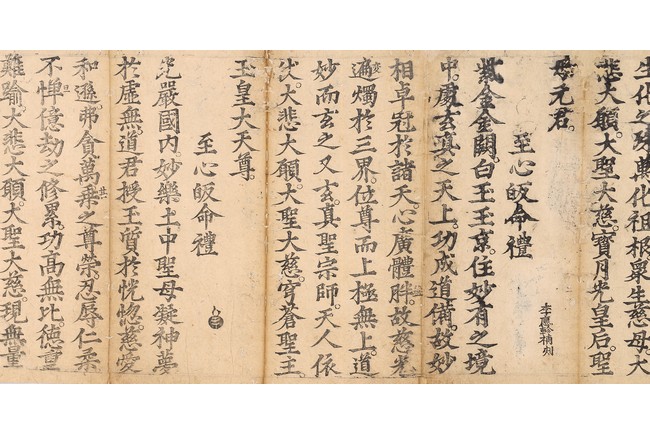 生化之殊典化祖根衆生慈母。大
悲大願。大聖大慈。寶月光皇后。聖
母元君。
至心皈命禮
紫金金闕。白玉玉京。住妙有之境
中。處玄眞之天上。功成道備。故妙
相卓冠於諸天。心廣體胖。故慈光
遍燭於三界。位尊而上極無上。道
妙而玄之又玄。眞聖宗師。天人依
仗。大悲大願。大聖大慈。穹蒼聖主
玉皇大天尊。
至心皈命禮
光嚴國内妙樂土中聖母凝神夢
於虛無。道君授玉質於恍惚。慈愛
和遜。弗貪萬乘之尊榮。忍辱仁柔
不憚億劫之修累。功高無比。德重
難踰。大悲大願。大聖大慈。現無量